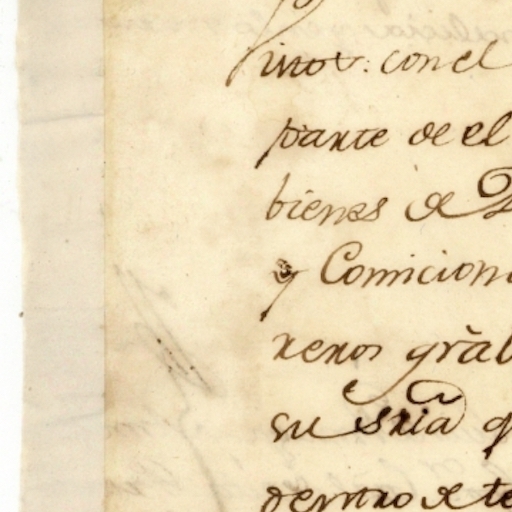 vinos: con el
parte de el
bienes de D
y Comicion
neros grãl
su Sriã q
dentro de te